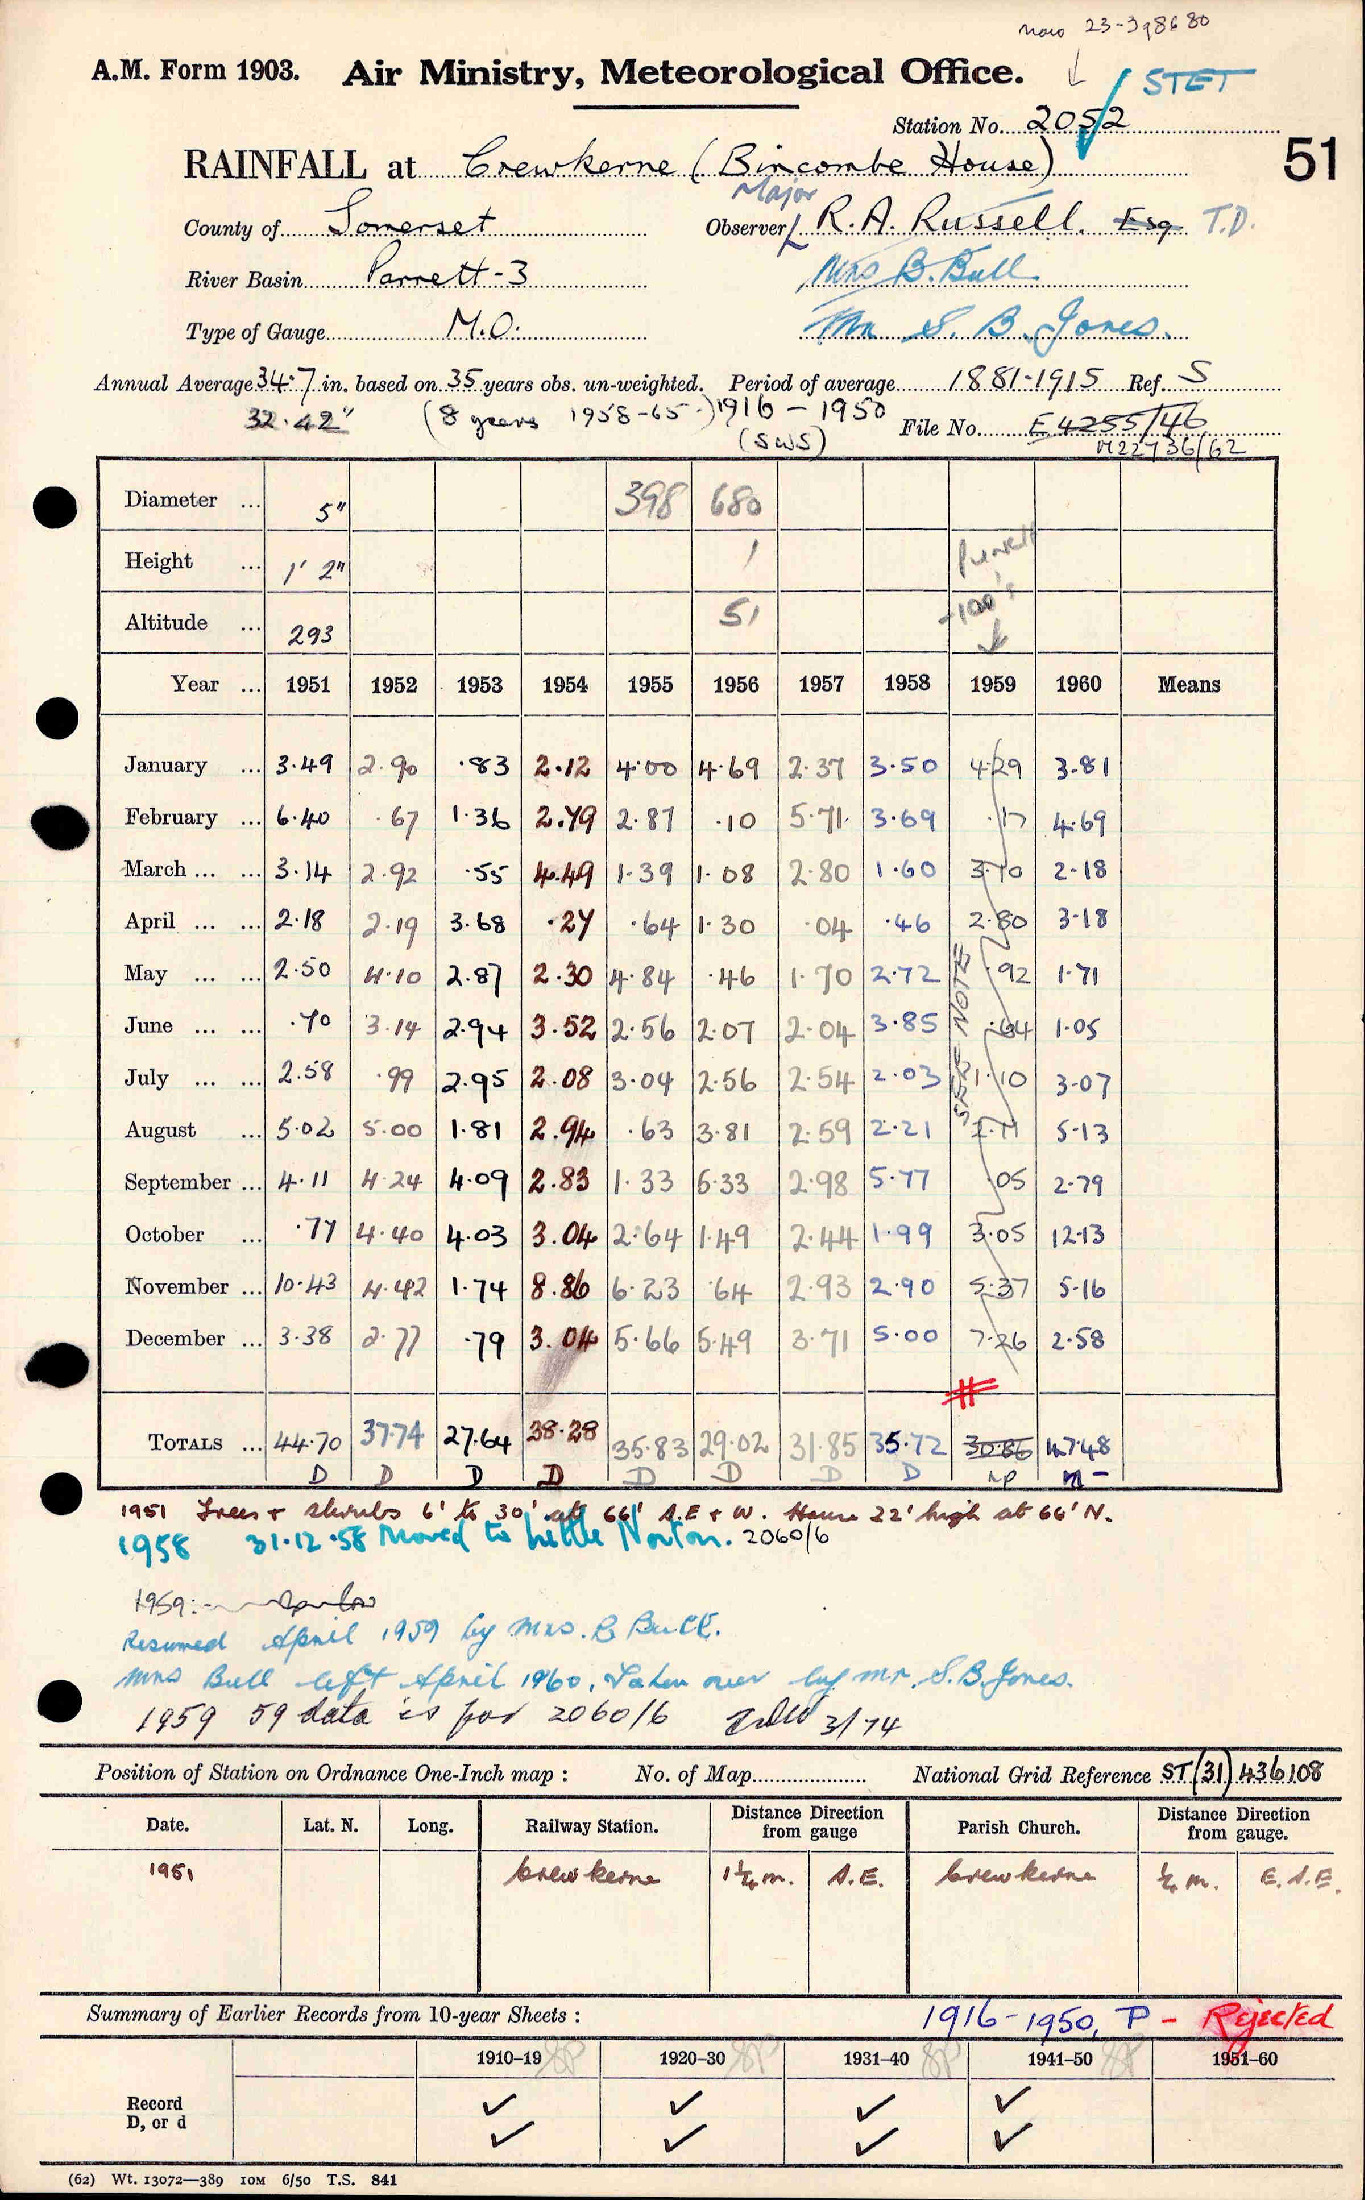 now 23-398680
A.M. Form 1903. Air Ministry, Meteorological Office.
STET
Station No. 2052
51
RAINFALL at Crewkerne (Bincombe House)
Major
County of Somerset Observer R.A. Russell. Esq T.D.
River Basin Parrett-3 Mrs B. Bull
Type of Gauge M.O. Mr S. B. Jones.
Annual Average 34.7 in. based on 35 years obs. un-weighted. Period of average 1881-1915 Ref. S
32.42" (8 years 1958-65) 1916-1950 File No. E4255/46
(SWS) M22736/62
Diameter ... 5" 398 680
Height ... 1' 2" 1
Altitude ... 293 51
-100's
Year ... 1951 1952 1953 1954 1955 1956 1957 1958 1959 1960 Means
January ... 3.49 2.90 .83 2.12 4.00 4.69 2.37 3.50 4.29 3.81
February ... 6.40 .67 1.36 2.79 2.87 .10 5.71 3.69 .17 4.69
March ... ... 3.14 2.92 .55 4.49 1.39 1.08 2.80 1.60 3.10 2.18
April ... ... 2.18 2.19 3.68 .27 .64 1.30 .04 .46 2.80 3.18
May ... ... 2.50 4.10 2.87 2.30 4.84 .46 1.70 2.72 .92 1.71
June ... ... .70 3.14 2.94 3.52 2.56 2.07 2.04 3.85 .64 1.05
July ... ... 2.58 .99 2.95 2.08 3.04 2.56 2.54 2.03 1.10 3.07
August ... 5.02 5.00 1.81 2.94 .63 3.81 2.59 2.21 2.11 5.13
September ... 4.11 4.24 4.09 2.83 1.33 5.33 2.98 5.77 .05 2.79
October ... .77 4.40 4.03 3.04 2.64 1.49 2.44 1.99 3.05 12.13
November ... 10.43 4.42 1.74 8.86 6.23 .64 2.93 2.90 5.37 5.16
December ... 3.38 2.77 .79 3.04 5.66 5.49 3.71 5.00 7.26 2.58
SEE NOTE
TOTALS ... 44.70 37.74 27.64 38.28 35.83 29.02 31.85 35.72 30.86 47.48
D D D D D D D D np m-
1951 Trees + shrubs 6' to 30' at 66' S.E + W. House 22' high at 66' N.
1958 31.12.58 Moved to Little Norton. 2060/6
1959:-
Resumed April 1959 by Mrs. B Bull.
Mrs Bull left April 1960. Taken over by Mr. S.B. Jones.
1959 59 data is for 2060/6 3/74
Position of Station on Ordnance One-Inch map : No. of Map National Grid Reference ST(31) 436108
Date. Lat. N. Long. Railway Station. Distance Direction from gauge Parish Church. Distance Direction from gauge.
1951 Crewkerne 1¼ m. S.E. Crewkerne ¼ m. E.S.E.
Summary of Earlier Records from 10-year Sheets : 1916-1950, P - Rejected
1910–19 SP 1920–30 SP 1931–40 SP 1941–50 SP 1951–60
Record ✓ ✓ ✓ ✓
D, or d ✓ ✓ ✓ ✓
(62) Wt. 13072—389 IOM 6/50 T.S. 841